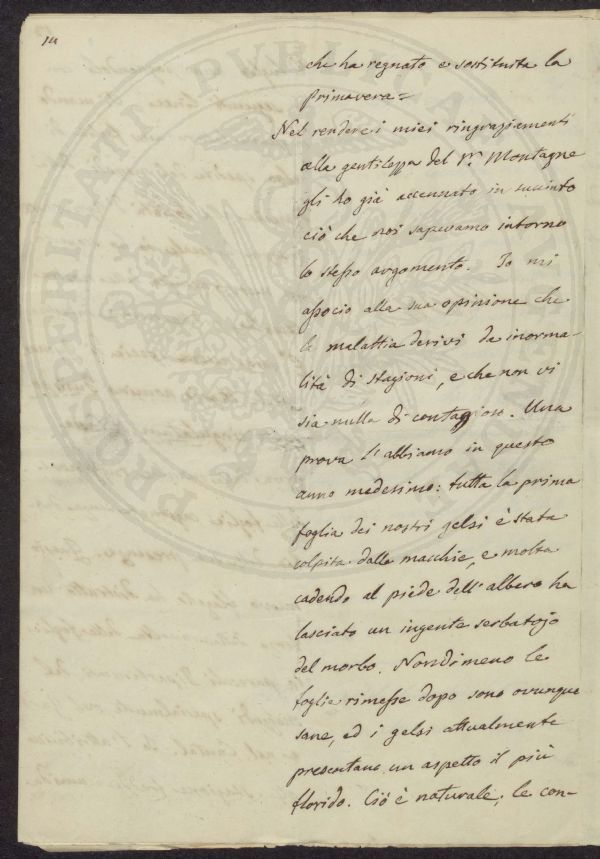 che ha regnato e sostituita la
primavera=
Nel rendere i miei ringraziamenti
alla gentilezza del Sr. Montagne
gli ho già accennato in succinto
ciò che noi sapevamo intorno
lo stesso argomento. Io mi
associo alla sua opinione che
la malattia derivi da inorma-
lità di stagioni, e che non vi
sia nulla di contaggioso. Una
prova l'abbiamo in questo
anno medesimo: tutta la prima
foglia dei nostri gelsi è stata
colpita dalle macchie, e molta
cadendo al piede dell'albero ha
lasciato un ingente serbatojo
del morbo. Nondimeno le
foglie rimesse dopo sono ovunque
sane, ed i gelsi attualmente
presentano un aspetto il più
florido. Ciò è naturale; le con-